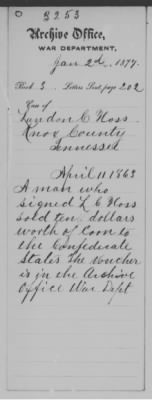 3253
Archive Office,
WAR DEPARTMENT,
Jan 2d, 1877.
Book 3... Letters Sent, page 202
Case of
Landon C Hoss
Knox County
Tennessee
April 11 1863
A man who
signed L C Hoss
sold ten dollars
worth of Corn to
the Confederate
States The voucher
is in the Archive
Office War Dept